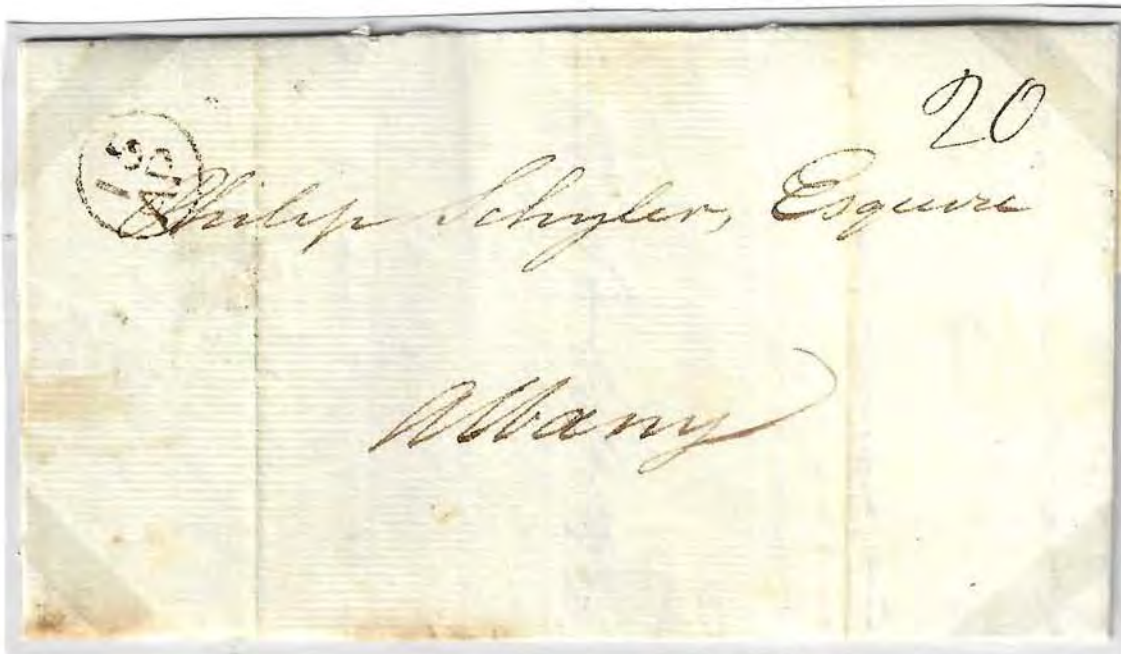 20
Philip Schyler, Esquire
Albany